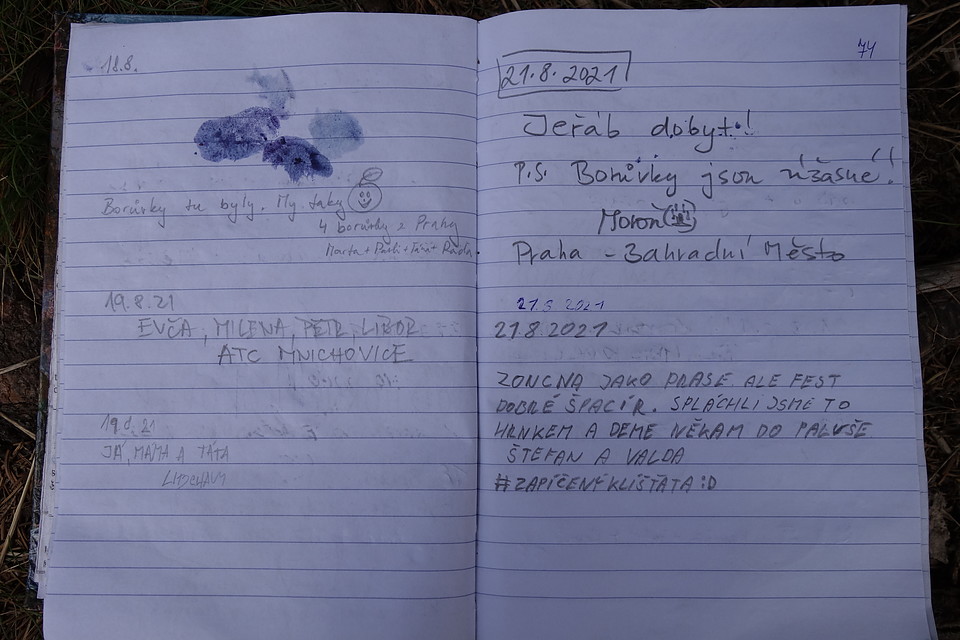 18.8.
Borůvky tu byly. My taky
4 borůvky z Prahy
Marta + + + Ráďa
19.8.21
EVČA, MILENA, PETR, LIBOR
ATC MNICHOVICE
19.8.21
JÁ, MAMA A TÁTA
74
21.8.2021
Jeřáb dobyt!
P.S. Borůvky jsou úžasné!!
Moroň
Praha - Zahradní Město
21.8.2021
21.8.2021
ZONCNA JAKO PRASE ALE FEST
DOBRÉ ŠPACÍR. SPLÁCHLI JSME TO
HRNKEM A DEME NĚKAM DO PALUŠE
ŠTEFAN A VALDA
#ZAPÍČENÝKLÍŠŤATA :D